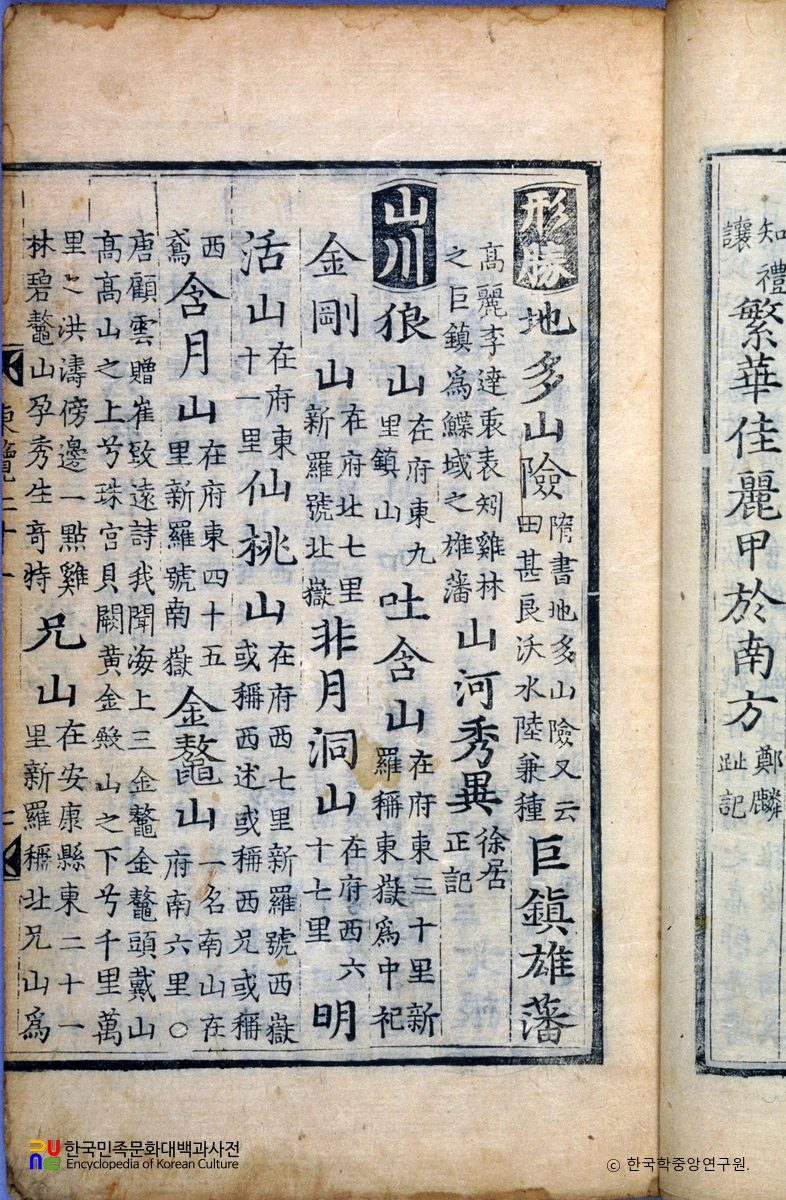 知禮讓繁華佳麗甲於南方鄭麟趾記
形勝地多山險隋書地多山險又云田甚良沃水陸兼種巨鎮雄藩
高麗李達衷表矧雞林之巨鎮為鰈域之雄藩山河秀異徐居正記
山川狼山在府東九里鎮山吐含山在府東三十里新羅稱東嶽為中祀
金剛山在府北七里新羅號北嶽非月洞山在府西六十七里明
活山在府東十一里仙桃山在府西七里新羅號西嶽或稱西述或稱西兄或稱
西鳶含月山在府東四十五里新羅號南嶽金鰲山一名南山在府南六里○
唐顧雲贈崔致遠詩我聞海上三金鰲金鰲頭戴山高高山之上兮珠宮貝闕黃金殿山之下兮千里萬
里之洪濤傍邊一點雞林碧鰲山孕秀生奇特兄山在安康縣東二十一里新羅稱北兄山為
한국민족문화대백과사전
Encyclopedia of Korean Culture
© 한국학중앙연구원.